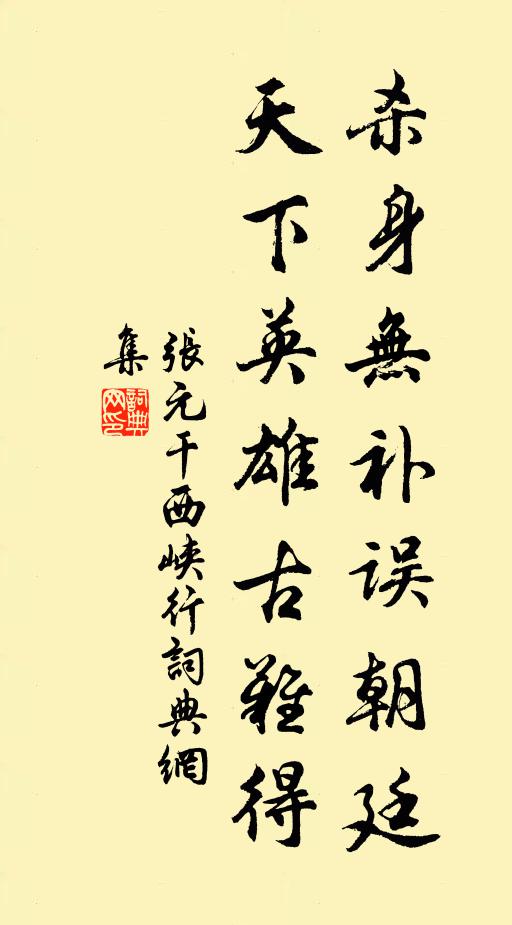 杀身無补误朝廷
天下英雄古難得
張元干西峡行詞典網
集
詞典
网印